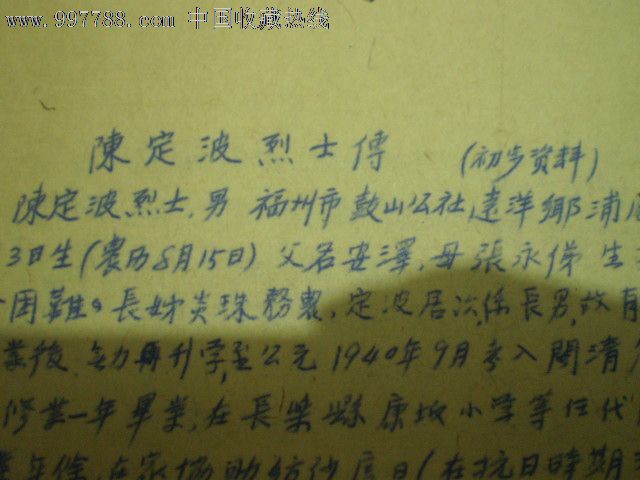 www.997788.com 中国收藏热线
陳定波烈士傳 (初步资料)
陳定波烈士,男 福州市鼓山公社遠洋鄉浦
3日生(農历8月15日)父名安澤,母張永俤 生
困難。長姊炎珠務農,定波居次,係長男,故
業後 無力再升学,至公元1940年9月考入閩清
修業一年畢業,在長樂縣康坂小学等任代
年餘,在家協助紡紗度日(在抗日時期